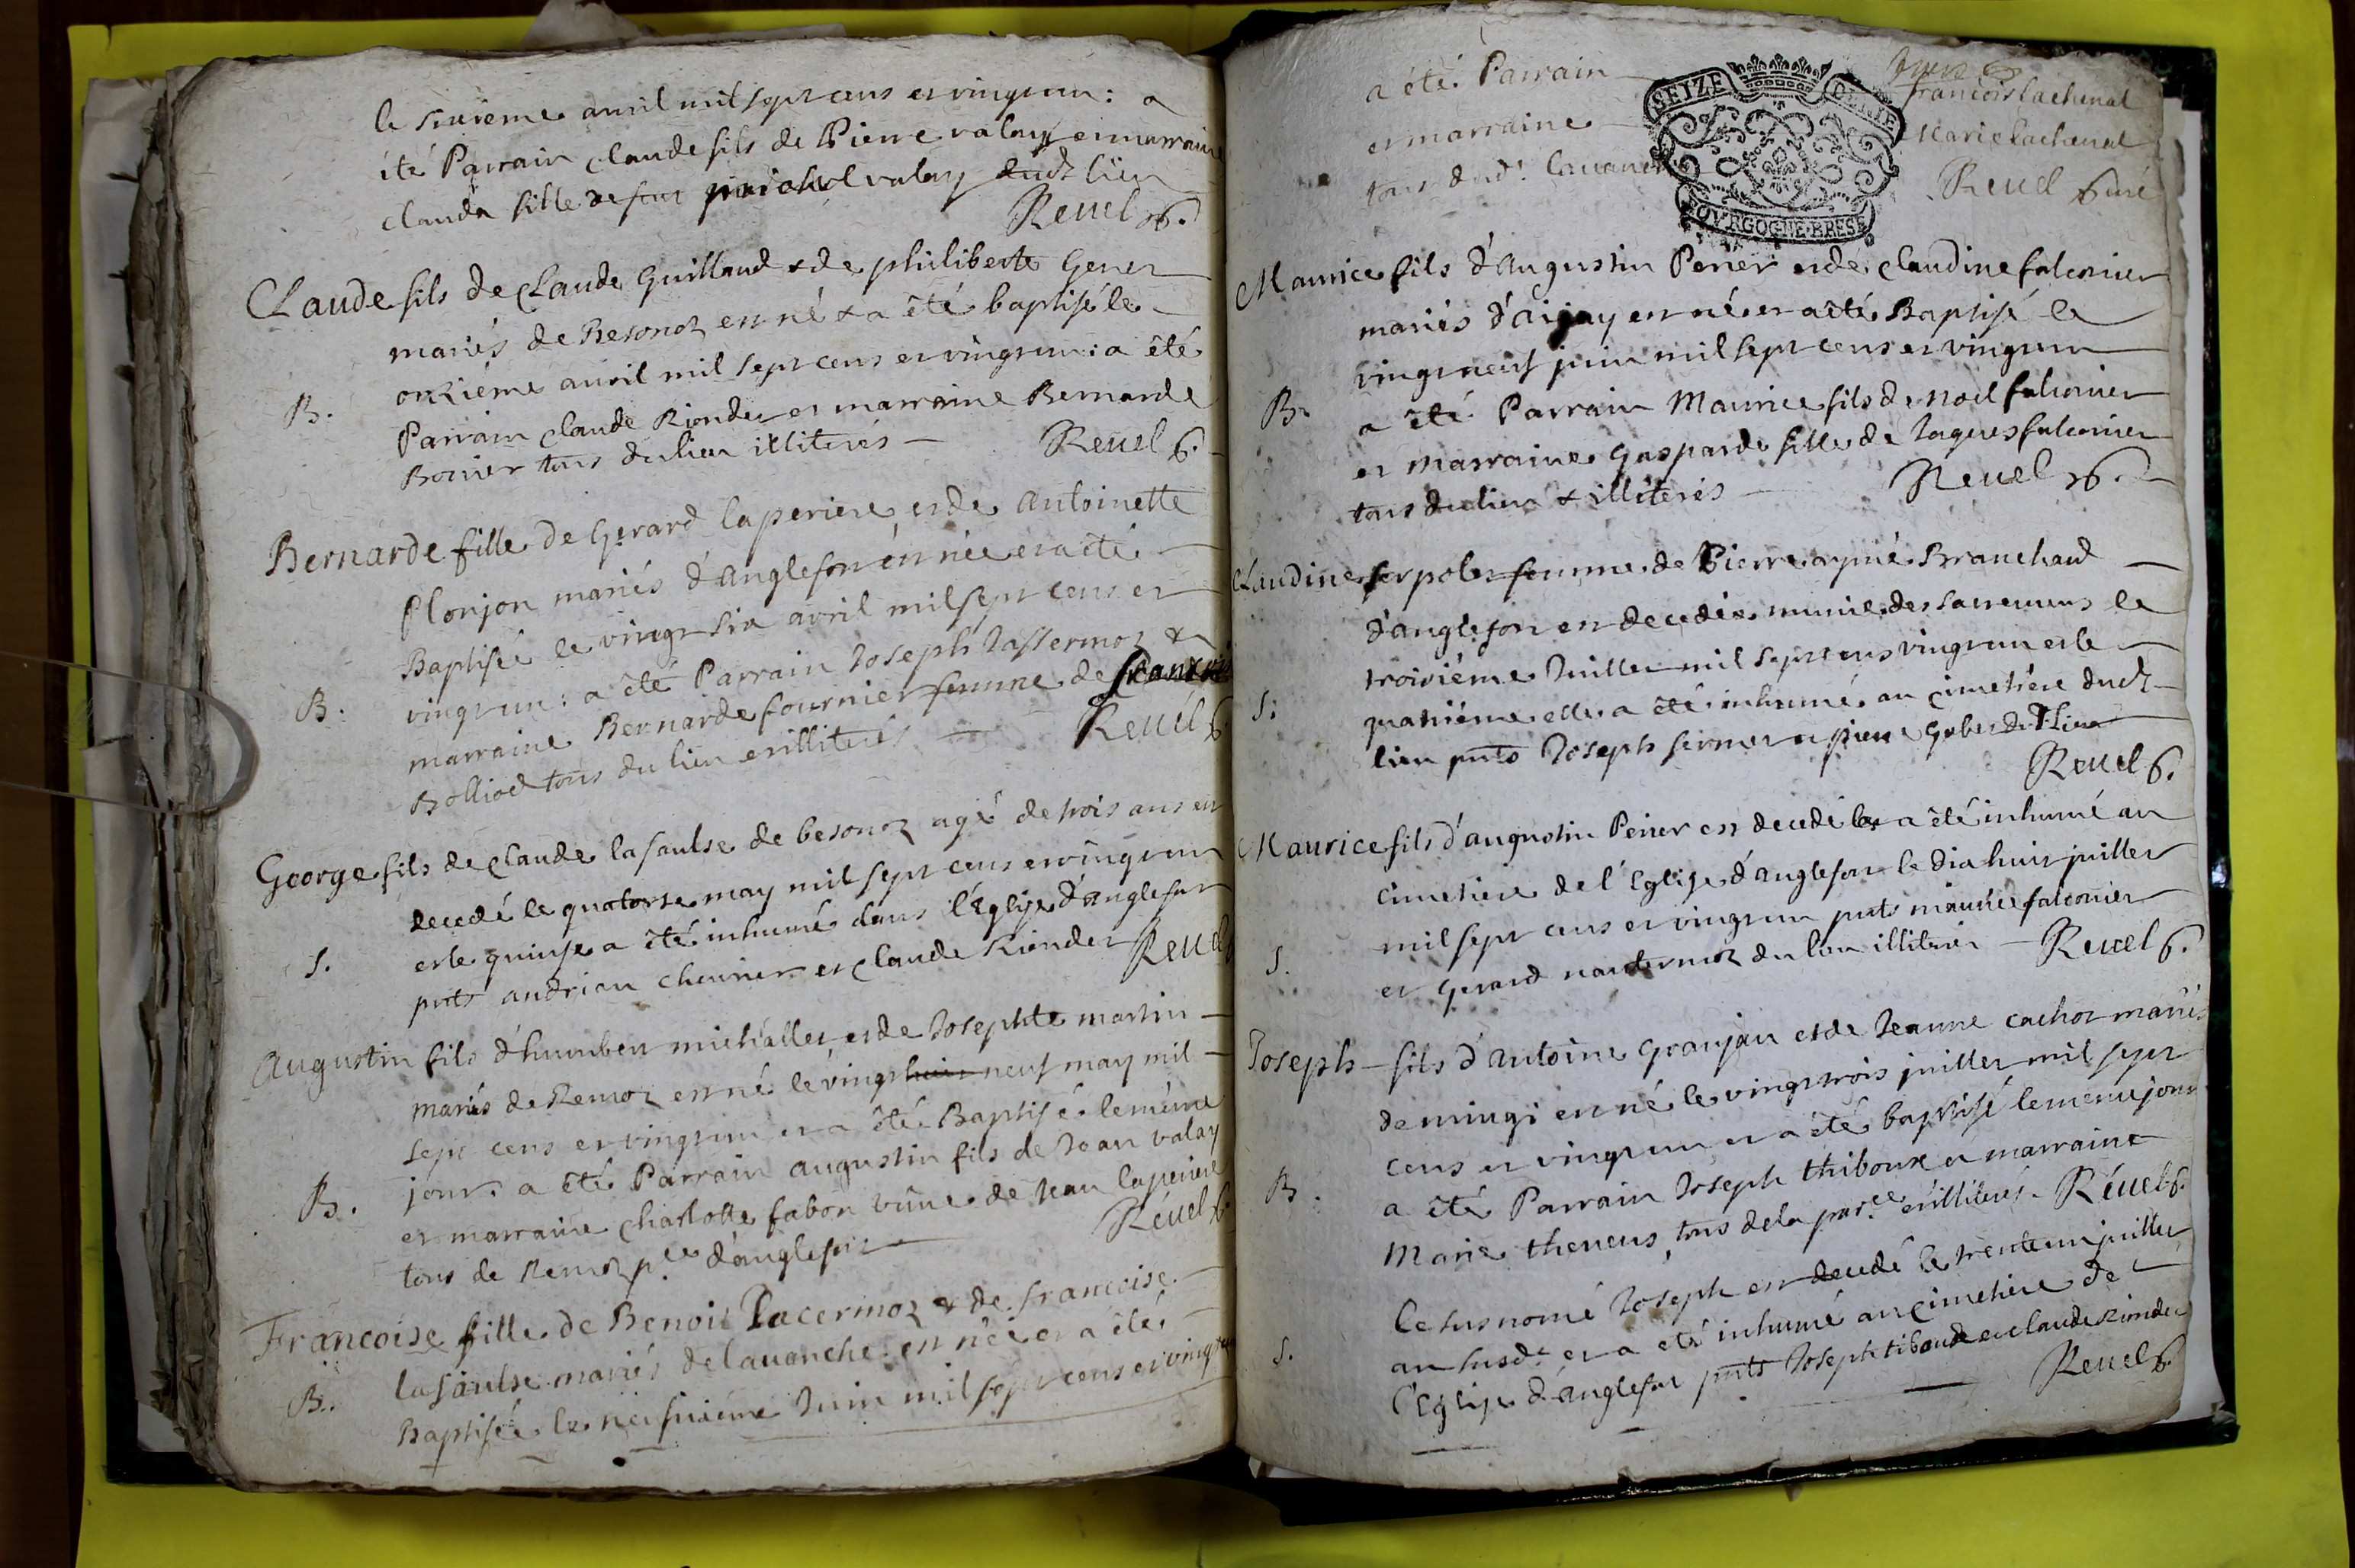 le sixieme avril mil sept cens et vingt un : a
été Parrain claude fils de Pierre valay et marraine
clauda fille de feu michel valay dud.t lieu
Revel C.
Claude fils de Claude Guillaud & de philiberte Gener
mariés de Besonoz est né & a été baptisé le
onzième avril mil sept cens et vingt un : a été
B.
Parrain claude Riondet et marraine Bernarde
Borrier tous du lieu illiterés
Revel C.
Bernarde fille de Gerard laperiere et de Antoinette
Plonjon mariés d'anglefon est née et a été
Baptisée le vingt six avril mil sept cens et
B.
vingt un : a été Parrain Joseph Jassermoz &
marraine Bernarde fournier femme de francois
Bolliod tous du lieu et illiterés
Revel C.
George fils de Claude lasaulse de besonoz agé de trois ans est
decedé le quatorse may mil sept cens et vingt un
et le quinse a été inhumé dans l'Eglise d'anglefor
S.
pnts andrian chevrier et Claude Riondet Revel C.
Augustin fils d'humbert michallet et de Josephte martin
mariés de Remoz est né le vingt huit neuf may mil
sept cens et vingt un et a été Baptisé le même
B.
jour. a été Parrain augustin fils de Jean valay
et marraine Charlotte fabon vüve de Jean laperiere
tous de Remoz p.sse d'anglefor
Revel C.
Francoise fille de Benoit Jacermoz & de francoise
lasaulse mariés de lavanche est née et a été
B.
Baptisée le neufvième Juin mil sept cens et vingt un
a été Parrain
francois lachenal
et marraine
Marie lachenal
tous dud.t lavanche
Revel Curé
SEIZE
BOVRGOGNE·BRESE
Maurice fils d'Augustin Perier et de Claudine falconier
mariés d'aijay est né et a été Baptisé le
vingt neuf juin mil sept cens et vingt un
B.
a été Parrain Maurice fils de noel falconier
et marraine Gasparde fille de Jaques falconier
tous du lieu & illiterés
Revel C.
Claudine serpolet femme de Pierre aymé Branchaud
d'anglefon est decedée munie des sacremens le
troisième Juillet mil sept cens vingt un et le
S.
quatrième elle a été inhumé au cimetiere dud.t
lieu pnts Joseph et pierre Gobet dud.t Lieu
Revel C.
Maurice fils d'augustin Perier est decedé & a été inhumé au
cimetiere de l'Eglise d'anglefon le dix huit juillet
mil sept cens et vingt un pnts maurice falconier
S.
et Gerard nantermoz du lieu illiterés
Revel C.
Joseph fils d'antoine Granjan et de Jeanne cachoz mariés
de mingi est né le vingt trois juillet mil sept
cens et vingt un et a été baptisé le meme jour
B.
a été Parrain Joseph thiboux et marraine
Marie thevens, tous de la par.ce et illiterés. Revel C.
Le susnomé Joseph est decedé le trente un juillet
an susd.t et a été inhumé au cimetiere de
S.
l'Eglise d'anglefor pnts Joseph tiboud et claude Riondet
Revel C.